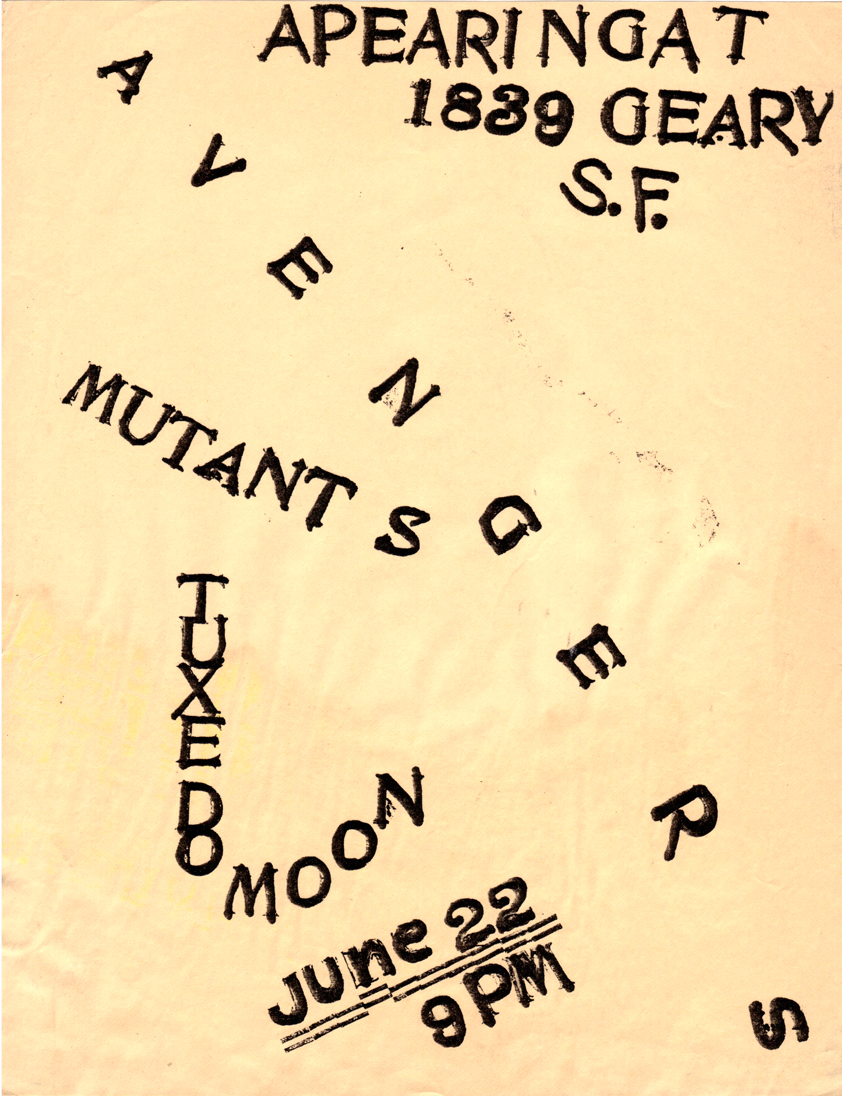 APEARINGAT
1839 GEARY
S.F.
AVENGERS
MUTANTS
TUXEDO
MOON
June 22
9PM